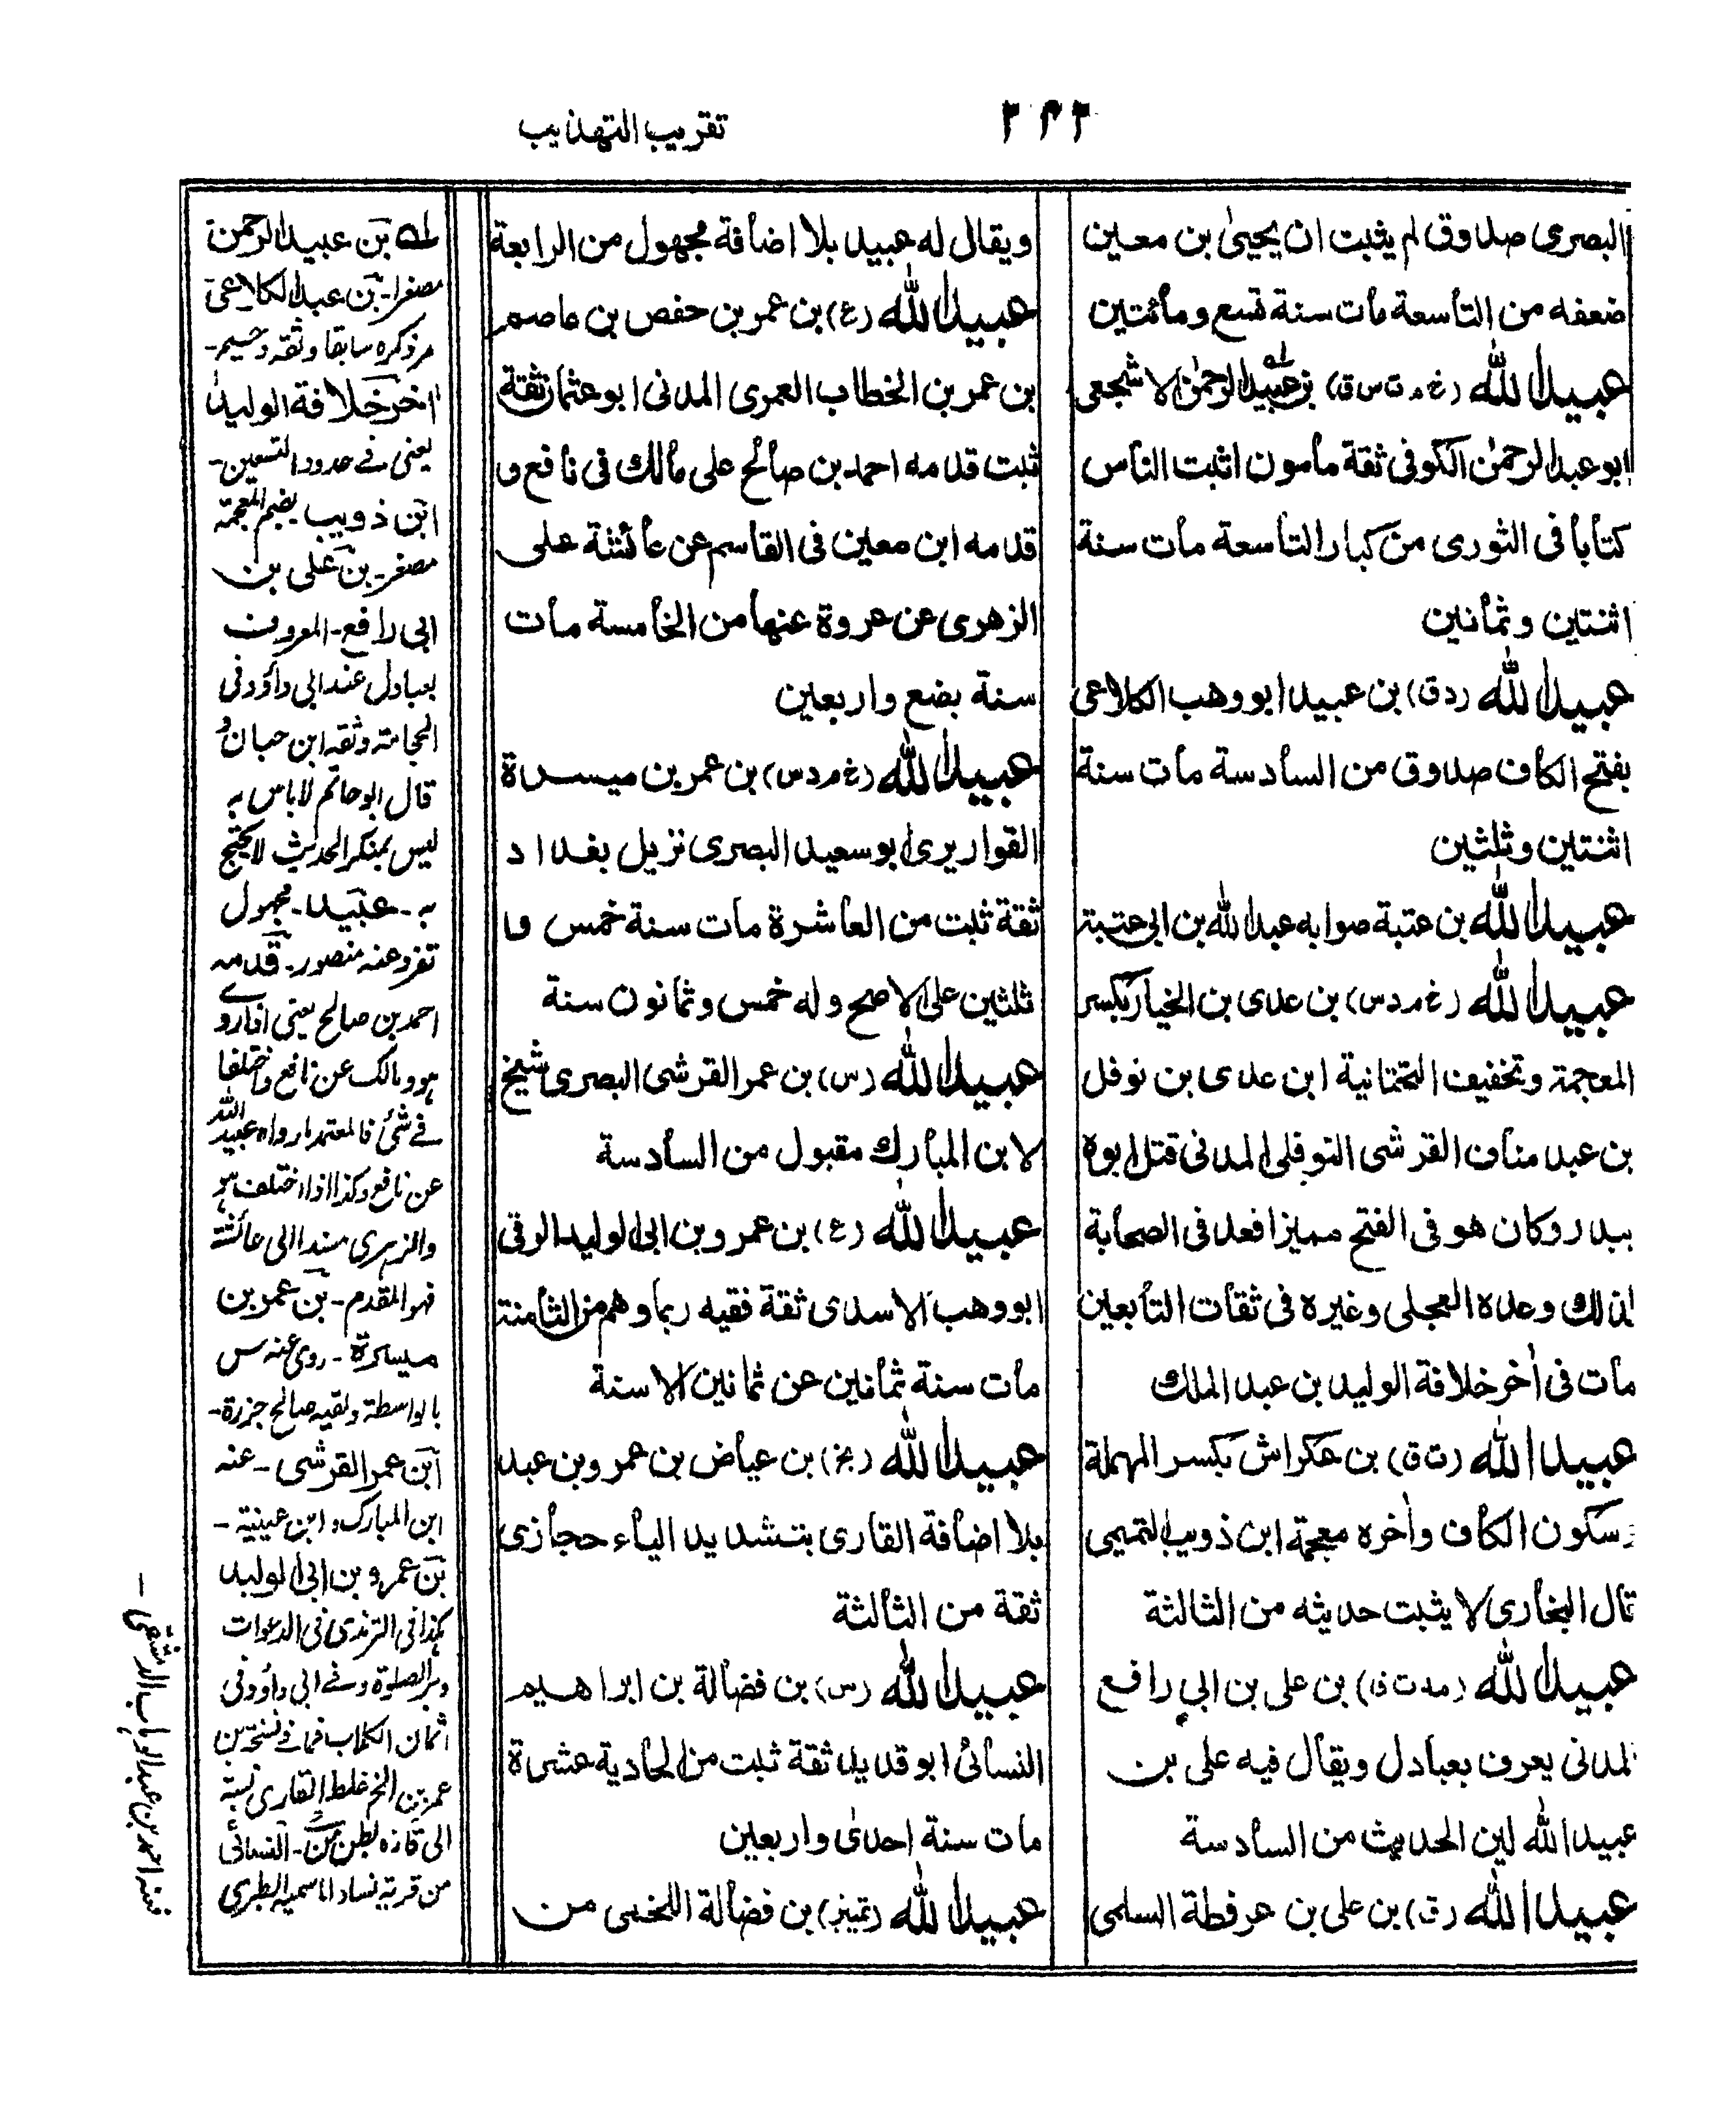 تقريب التهذيب
٢٤٢
البصرى صدوق لم يثبت ان يحيىٰ بن معين
ضعفه من التاسعة مات سنة تسع ومائتين
عبيد الله (خ م ت س ق) بن عبيد الرحمٰن الاشجعى
ابو عبد الرحمٰن الكوفى ثقة مأمون اثبت الناس
كتابا فى الثورى من كبار التاسعة مات سنة
اثنتين وثمانين
عبيد الله (د ق) بن عبيد ابو وهب الكلاعى
بفتح الكاف صدوق من السادسة مات سنة
اثنتين وثلثين
عبيد الله بن عتبة صوابه عبد الله بن ابى عتبة
عبيد الله (خ م د س) بن عدى بن الخيار بكسر
المعجمة وتخفيف التحتانية ابن عدى بن نوفل
بن عبد مناف القرشى النوفلى المدنى قتل ابوه
ببدر وكان هو فى الفتح مميزا فعد فى الصحابة
لذلك وعده العجلى وغيره فى ثقات التابعين
مات فى اٰخر خلافة الوليد بن عبد الملك
عبيد الله (ت ق) بن عكراش بكسر المهملة
وسكون الكاف واٰخره معجمة ابن ذويب التميمى
قال البخارى لا يثبت حديثه من الثالثة
عبيد الله (مد ت ق) بن على بن ابي رافع
المدنى يعرف بعبادل ويقال فيه على بن
عبيد الله لين الحديث من السادسة
عبيد الله (ق) بن على بن عرفطة السلمى
ويقال له عبيد بلا اضافة مجهول من الرابعة
عبيد الله (ع) بن عمر بن حفص بن عاصم
بن عمر بن الخطاب العمرى المدنى ابو عثمان ثقة
ثبت قدمه احمد بن صالح على مالك فى نافع و
قدمه ابن معين فى القاسم عن عائشة على
الزهرى عن عروة عنها من الخامسة مات
سنة بضع واربعين
عبيد الله (خ م د س) بن عمر بن ميسرة
القواريرى ابو سعيد البصرى نزيل بغداد
ثقة ثبت من العاشرة مات سنة خمس و
ثلثين على الاصح وله خمس وثمانون سنة
عبيد الله (س) بن عمر القرشى البصرى شيخ
لابن المبارك مقبول من السادسة
عبيد الله (ع) بن عمرو بن ابى الوليد الرقى
ابو وهب الاسدى ثقة فقيه ربما وهم من الثامنة
مات سنة ثمانين عن ثمانين الا سنة
عبيد الله (بخ) بن عياض بن عمرو بن عبد
بلا اضافة القارى بتشديد الياء حجازى
ثقة من الثالثة
عبيد الله (س) بن فضالة بن ابراهيم
النسائى ابو قديد ثقة ثبت من الحادية عشرة
مات سنة احدىٰ واربعين
عبيد الله (تمييز) بن فضالة اللخمى من
له بن عبيد الرحمن
مصغرا- بن عبيد الكلاعى
مر ذكره سابقا وثقه دحيم-
اٰخر خلافة الوليد
يعنى فى حدود التسعين-
ابن ذويب بضم المعجمة
مصغر- بن على بن
ابى رافع- المعروف
بعبادل عند ابى داؤد فى
الحجامة وثقه ابن حبان و
قال ابو حاتم لا باس به
ليس بمنكر الحديث لا يحتج
به- عبيد- مجهول
تفرد عنه منصور- قدمه
احمد بن صالح يعنى اذا روى
هو ومالك عن نافع واختلفا
فى شئ فالمعتمد ما رواه عبيد الله
عن نافع وكذا اذا اختلف هو
والزهرى مسندا الى عائشة
فهو المقدم- بن عمر بن
ميسرة- روى عنه س
بالواسطة ولقيه صالح جزرة-
ابن عمر القرشى- عنه
ابن المبارك وابن عيينة-
بن عمرو بن ابى الوليد
هكذا فى الترمذى فى الدعوات
والصلوة وفى ابى داؤد فى
اثمان الكلاب فما فى نسخة بن
عمر بن الخ غلط القارى نسبة
الى قارة بطن من- النسائى
من قرية نسا
احمد بن عبد الوهاب الدمشقى-